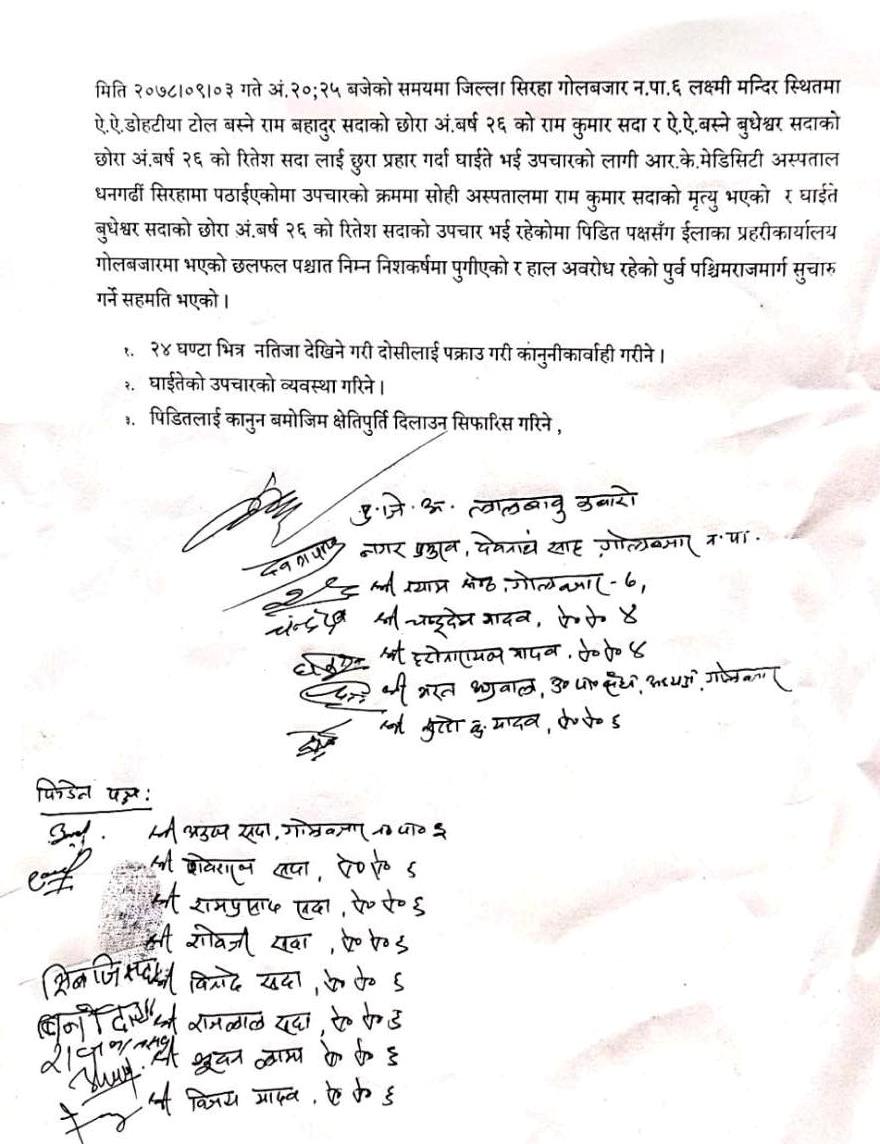 मिति २०७८।०९।०३ गते अं.२०;२५ बजेको समयमा जिल्ला सिरहा गोलबजार न.पा.६ लक्ष्मी मन्दिर स्थितमा
ऐ.ऐ.डोहटीया टोल बस्ने राम बहादुर सदाको छोरा अं.बर्ष २६ को राम कुमार सदा र ऐ.ऐ.बस्ने बुधेश्वर सदाको
छोरा अं.बर्ष २६ को रितेश सदा लाई छुरा प्रहार गर्दा घाईते भई उपचारको लागी आर.के.मेडिसिटी अस्पताल
धनगढीं सिरहामा पठाईएकोमा उपचारको क्रममा सोही अस्पतालमा राम कुमार सदाको मृत्यु भएको र घाईते
बुधेश्वर सदाको छोरा अं.बर्ष २६ को रितेश सदाको उपचार भई रहेकोमा पिडित पक्षसँग ईलाका प्रहरीकार्यालय
गोलबजारमा भएको छलफल पश्चात निम्न निशकर्षमा पुगीएको र हाल अवरोध रहेको पुर्व पश्चिमराजमार्ग सुचारु
गर्ने सहमति भएको।
१. २४ घण्टा भित्र नतिजा देखिने गरी दोसीलाई पक्राउ गरी कानुनीकार्वाही गरीने।
२. घाईतेको उपचारको व्यवस्था गरिने।
३. पिडितलाई कानुन बमोजिम क्षेतिपुर्ति दिलाउन सिफारिस गरिने,
प्र.जि.अ. लालबाबु
नगर प्रमुख, देवनाथ साह गोलबजार न.पा.
श्री श्याम श्रेष्ठ, गोलबजार-६,
श्री चन्द्रदेव यादव, ऐ० ऐ० ४
श्री यादव, ऐ० ऐ० ४
श्री भरत अग्रवाल, उ० वा० संघ, अध्यक्ष, गोलबजार
श्री कु. यादव, ऐ० ऐ० ६
पिडित पक्ष:
श्री सदा, गोलबजार न० पा० ६
श्री सदा, ऐ० ऐ० ६
श्री रामप्रसाद सदा, ऐ० ऐ० ६
श्री सदा, ऐ० ऐ० ६
श्री सदा, ऐ० ऐ० ६
श्री रामलाल सदा, ऐ० ऐ० ६
श्री ऐ० ऐ० ६
श्री विजय यादव, ऐ० ऐ० ६